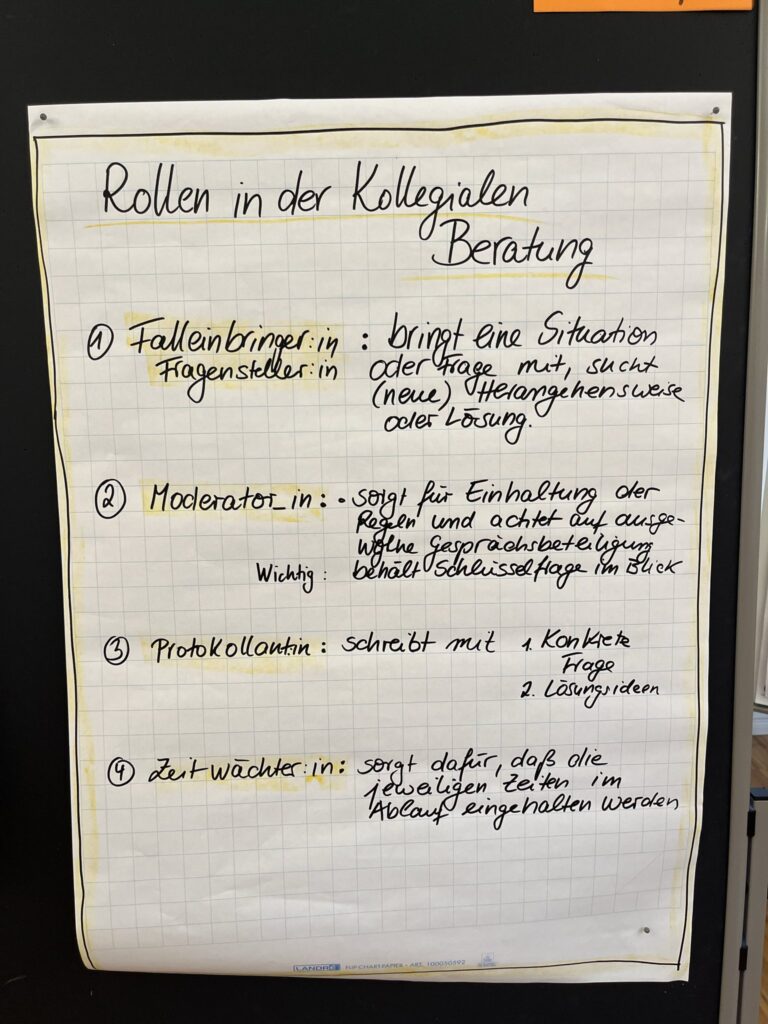 Rollen in der Kollegialen
Beratung
① Falleinbringer:in : bringt eine Situation
Fragensteller:in oder Frage mit, sucht
(neue) Herangehensweise
oder Lösung.
② Moderator_in: - sorgt für Einhaltung der
Regeln und achtet auf ausge-
wogene Gesprächsbeteiligung
Wichtig: behält Schlüsselfrage im Blick
③ Protokollantin: schreibt mit 1. Konkrete
Frage
2. Lösungsideen
④ Zeitwächter:in: sorgt dafür, daß die
jeweiligen Zeiten im
Ablauf eingehalten werden
LANDRÉ FLIPCHARTPAPIER - ART. 100050592